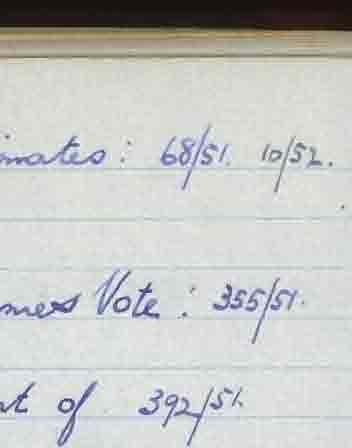 mates: 68/51. 10/52.
mers Vote: 355/51.
t of 392/51.